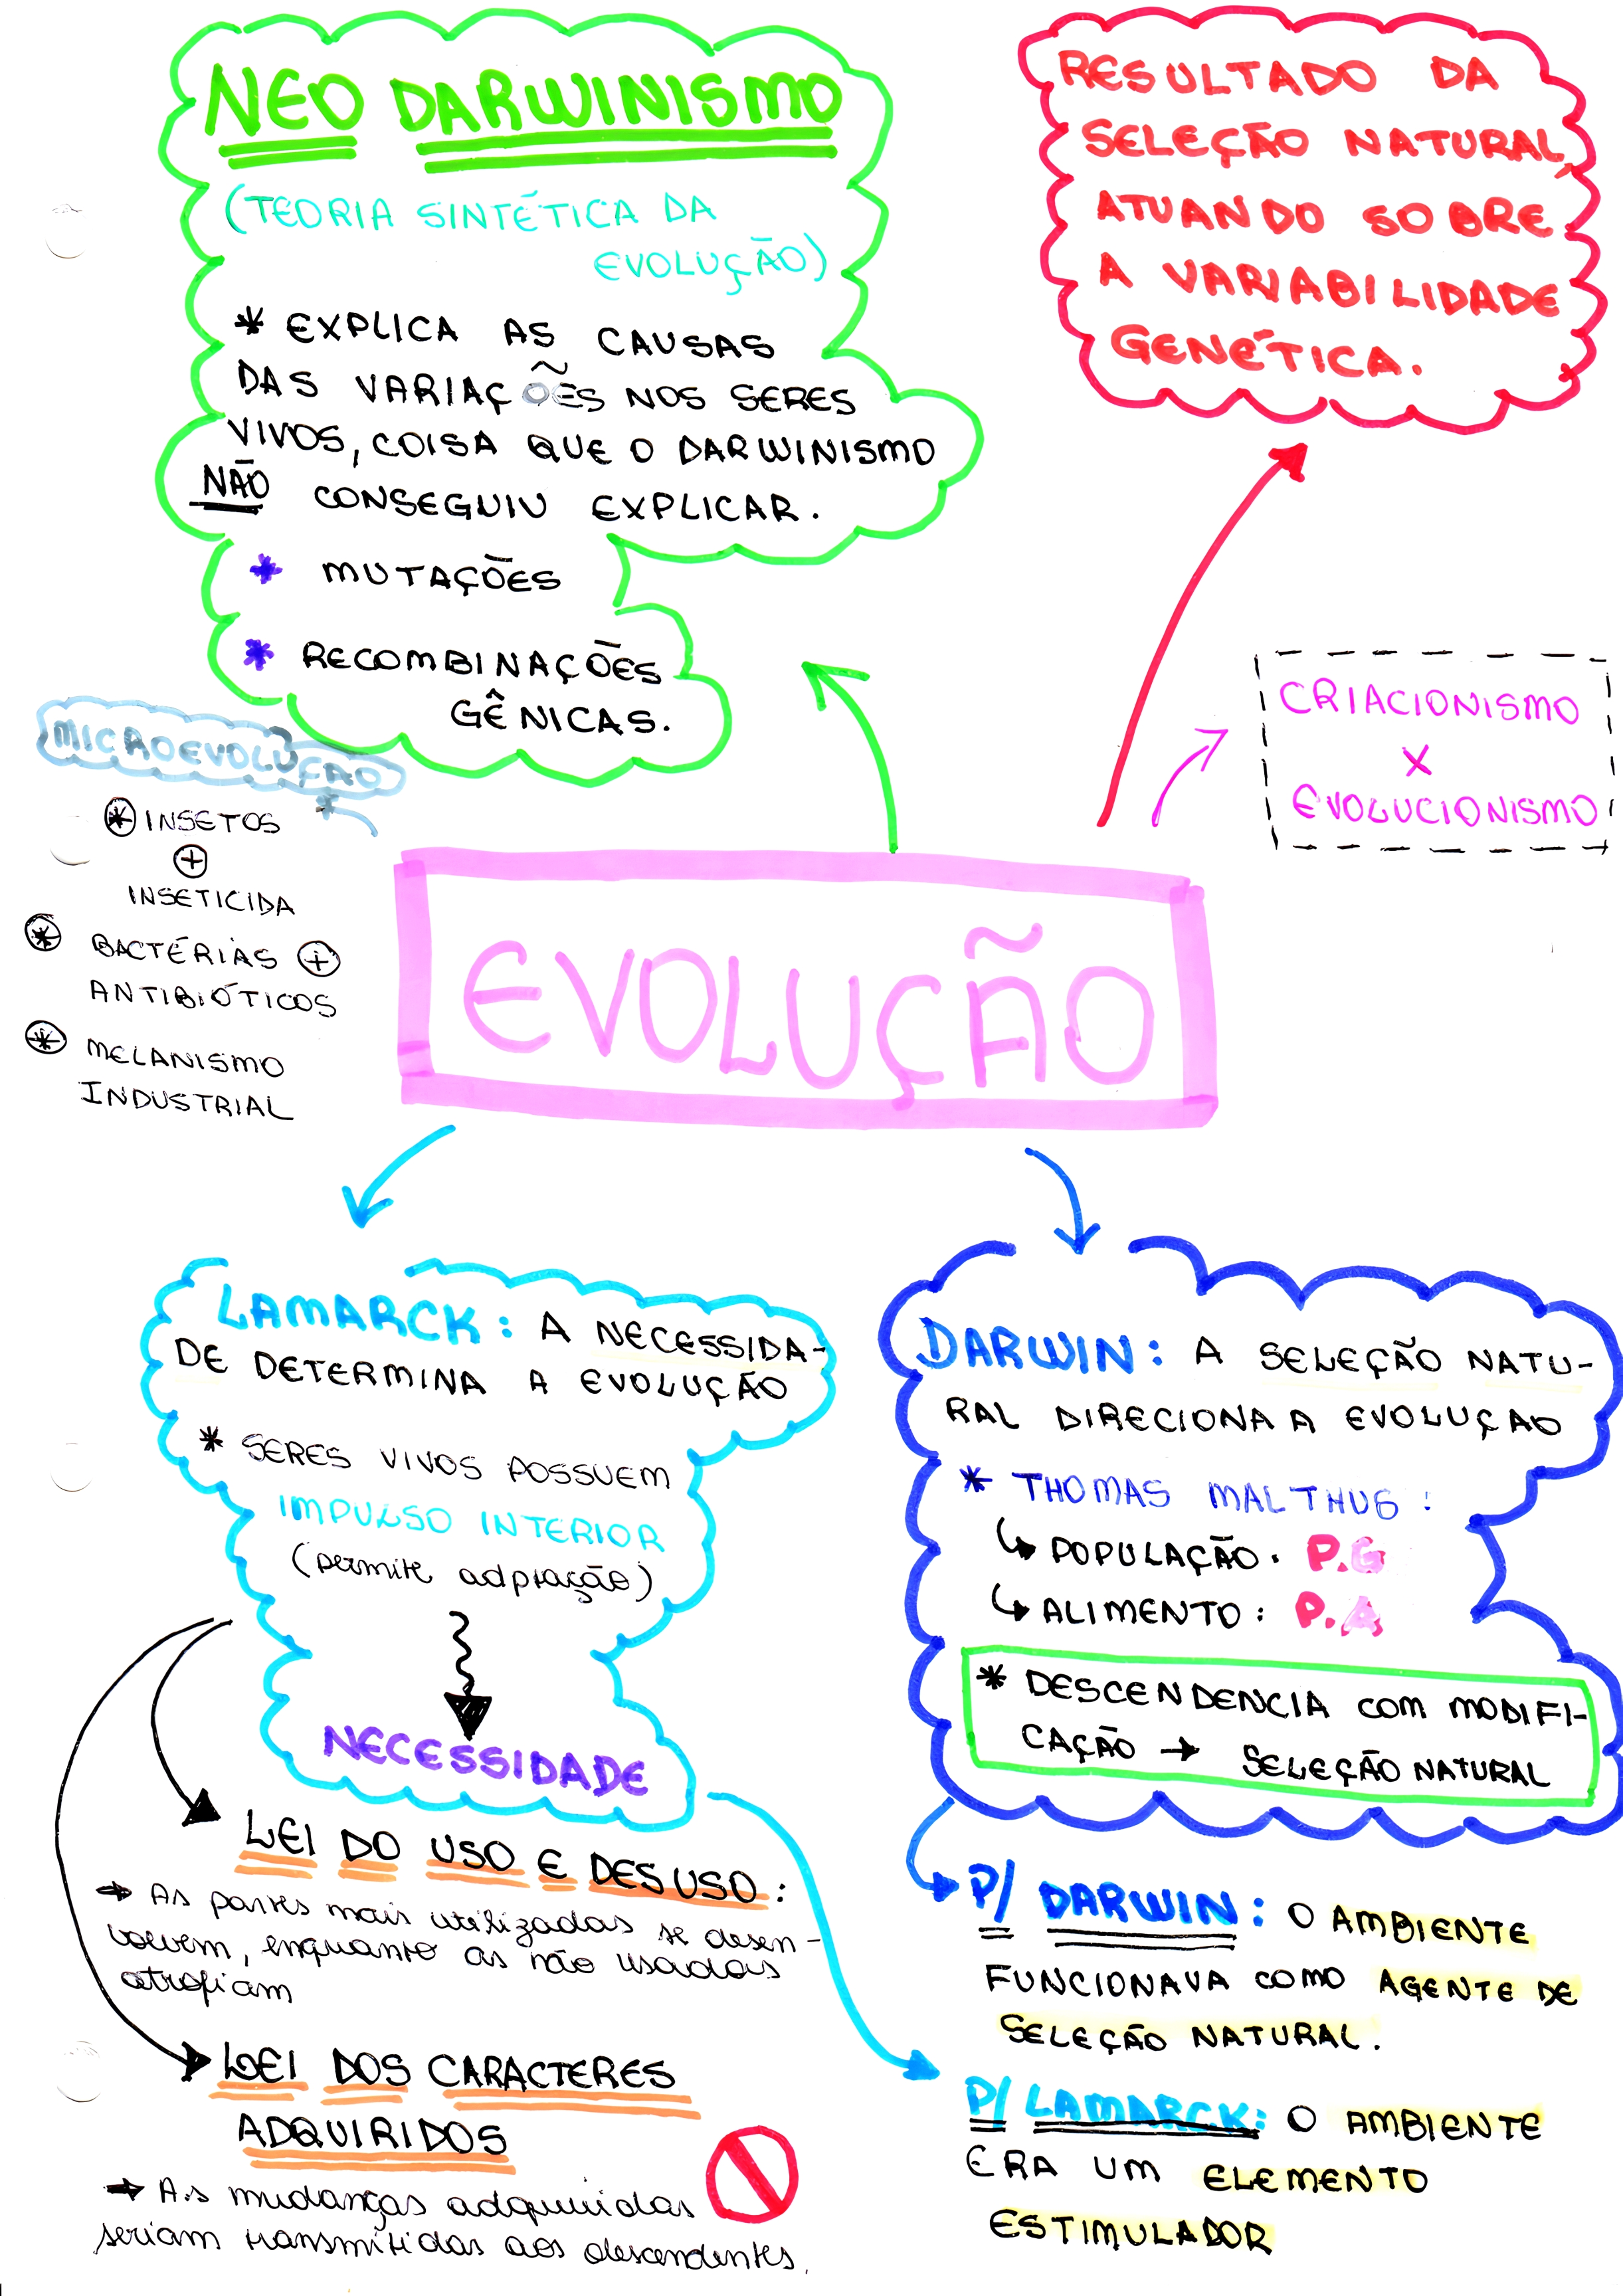 NEO DARWINISMO
(TEORIA SINTÉTICA DA
EVOLUÇÃO)
* EXPLICA AS CAUSAS
DAS VARIAÇÕES NOS SERES
VIVOS, COISA QUE O DARWINISMO
NÃO CONSEGUIU EXPLICAR.
* MUTAÇÕES
* RECOMBINAÇÕES
GÊNICAS.
RESULTADO DA
SELEÇÃO NATURAL,
ATUANDO SOBRE
A VARIABILIDADE
GENÉTICA.
CRIACIONISMO
X
EVOLUCIONISMO
MICROEVOLUÇÃO
* INSETOS
+
INSETICIDA
* BACTÉRIAS +
ANTIBIÓTICOS
* MELANISMO
INDUSTRIAL
EVOLUÇÃO
LAMARCK: A NECESSIDA-
DE DETERMINA A EVOLUÇÃO
* SERES VIVOS POSSUEM
IMPULSO INTERIOR
(permite adptação)
NECESSIDADE
LEI DO USO E DESUSO:
→ As partes mais utilizadas se desen-
volvem, enquanto as não usadas
atrofiam
LEI DOS CARACTERES
ADQUIRIDOS
→ As mudanças adquiridas
seriam transmitidas aos descendentes.
DARWIN: A SELEÇÃO NATU-
RAL DIRECIONA A EVOLUÇÃO
* THOMAS MALTHUS:
↳ POPULAÇÃO: P.G
↳ ALIMENTO: P.A
* DESCENDENCIA COM MODIFI-
CAÇÃO → SELEÇÃO NATURAL
P/ DARWIN: O AMBIENTE
FUNCIONAVA COMO AGENTE DE
SELEÇÃO NATURAL.
P/ LAMARCK: O AMBIENTE
ERA UM ELEMENTO
ESTIMULADOR